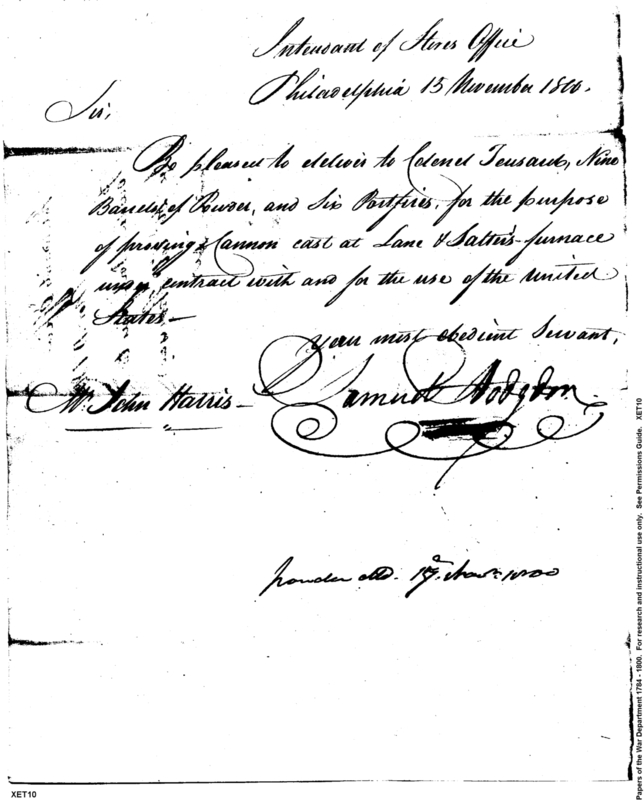 Intendant of Stores Office
Philadelphia 15 November 1800.
Sir,
Be pleased to deliver to Colonel Tousard, Nine
Barrels of Powder, and Six Portfires, for the purpose
of proving Cannon cast at Lane & Salter's furnace
under contract with and for the use of the United
States—
Your most obedient Servant,
Mr. John Harris— Samuel Hodgdon
powder 17. Novr. 1800
Papers of the War Department 1784 - 1800. For research and instructional use only. See Permissions Guide. XET10
XET10